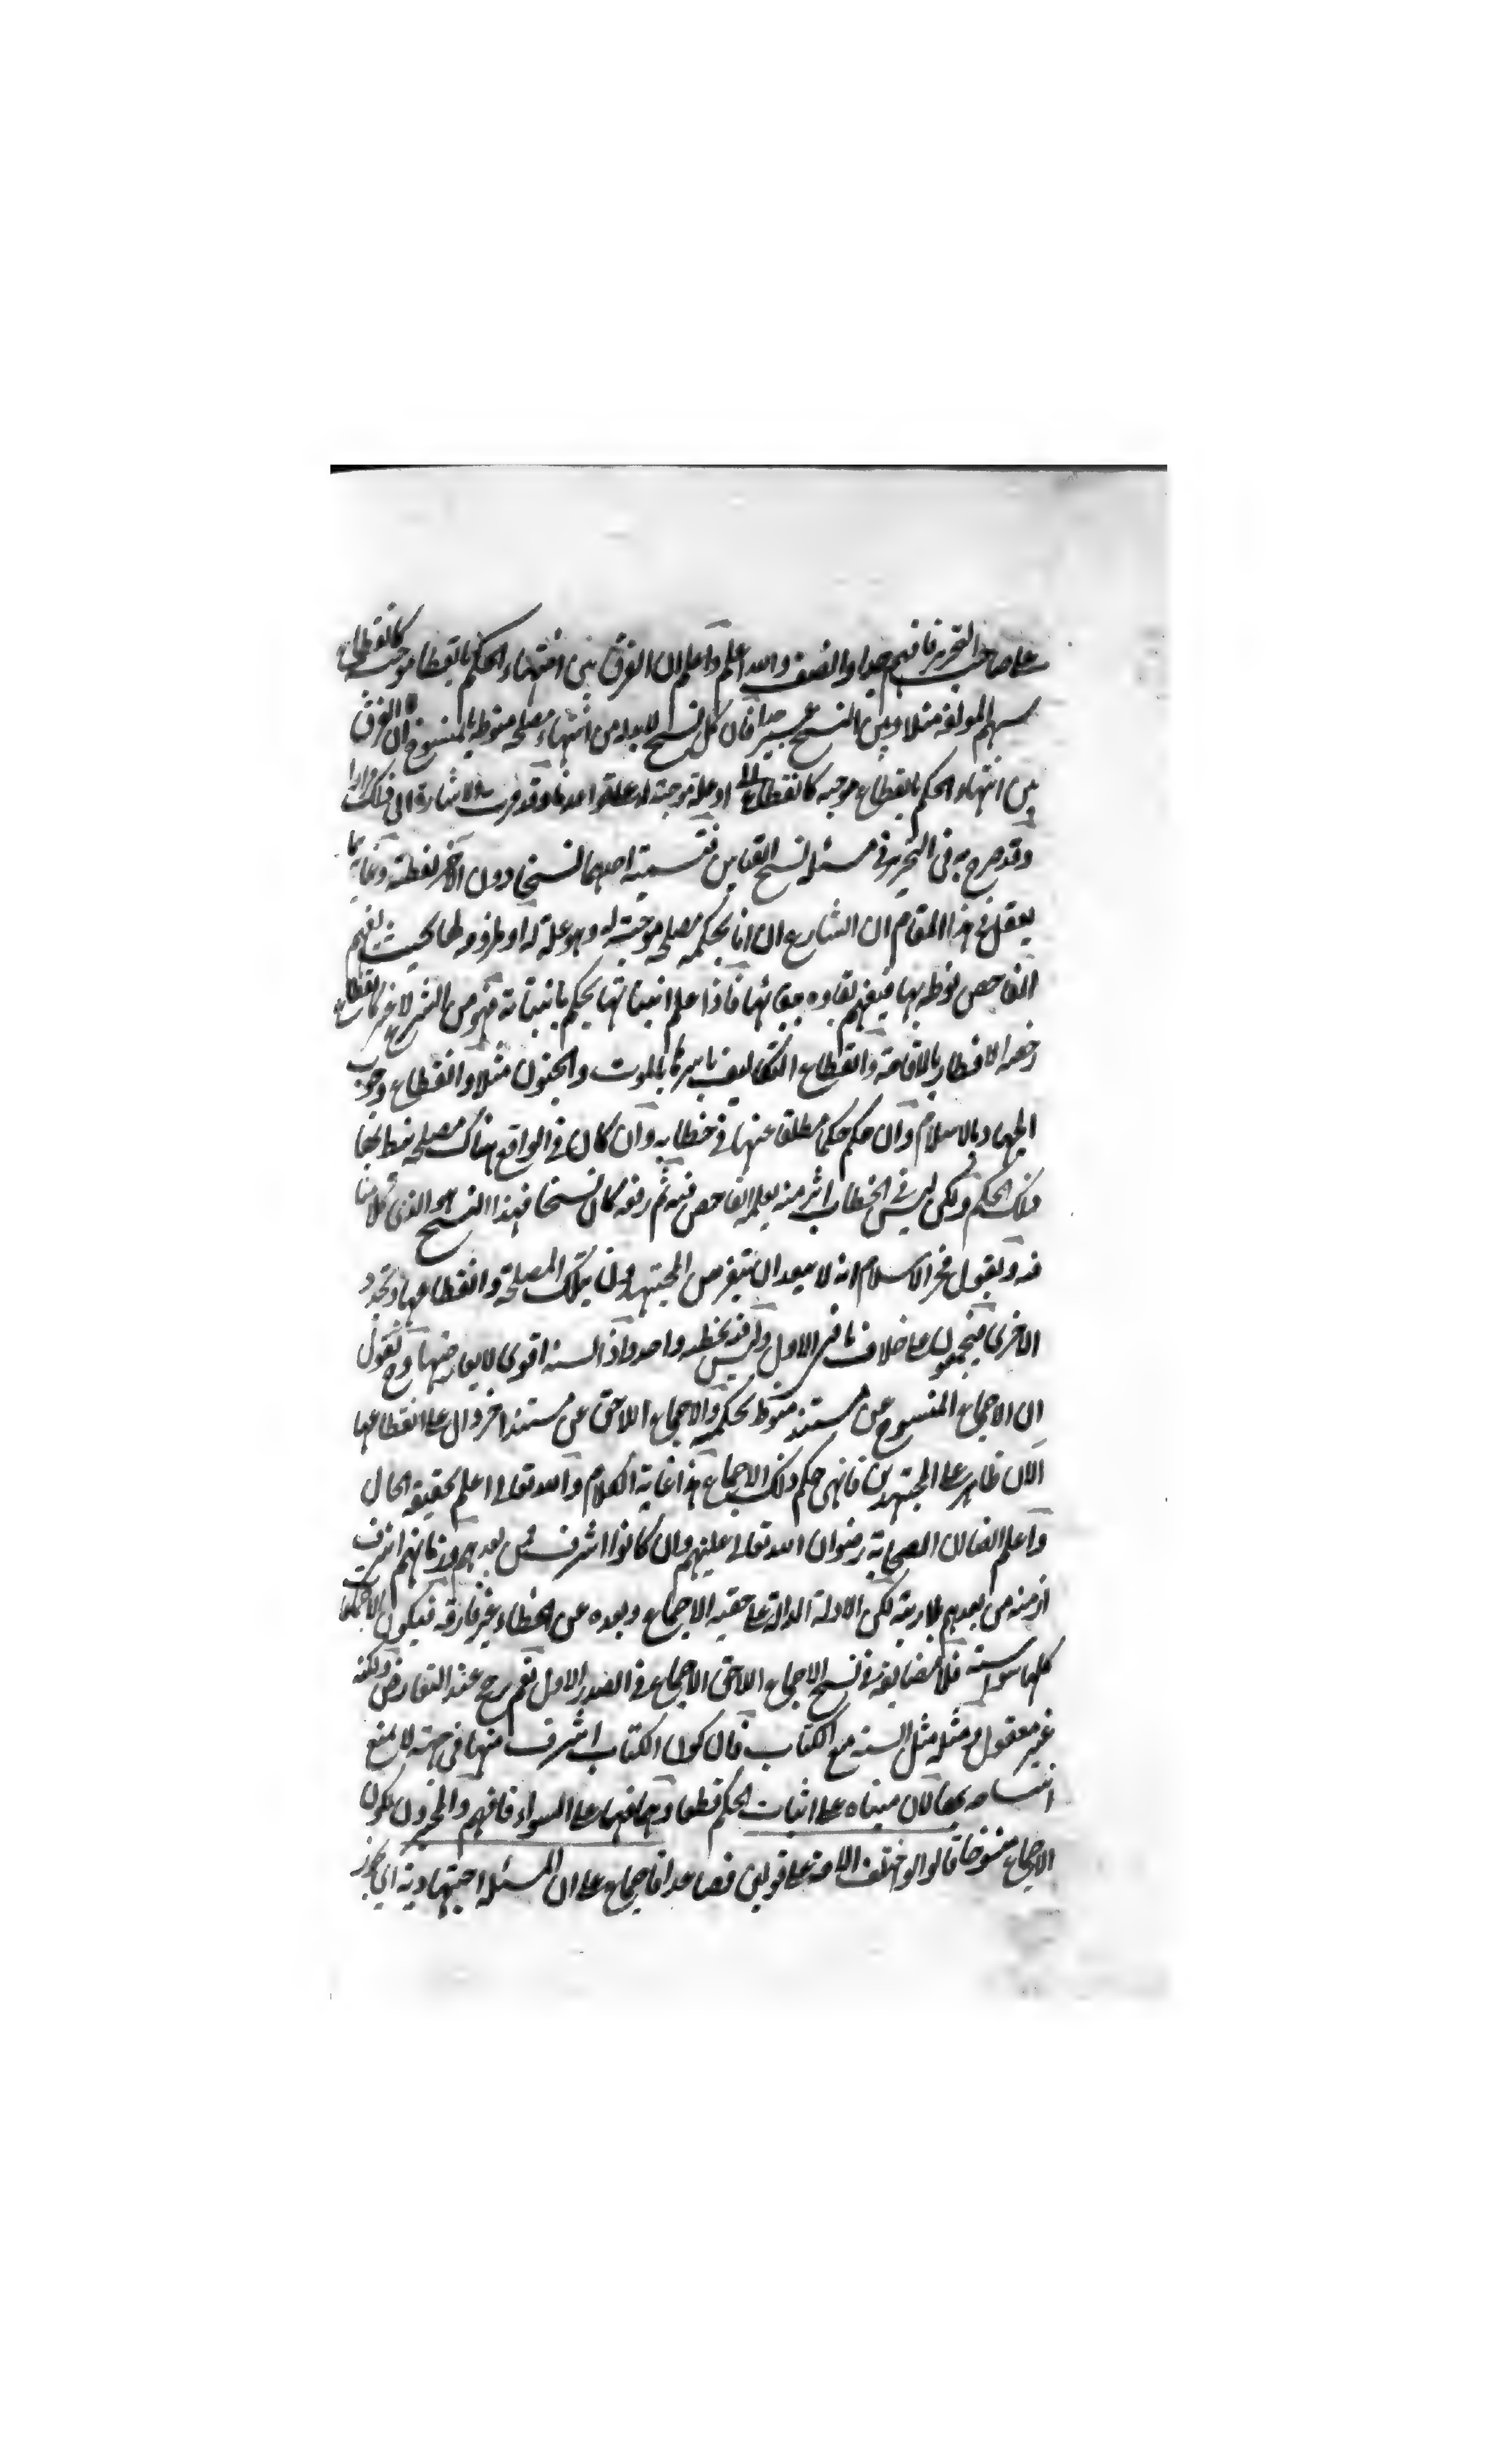 على صاحب التحرير فافهم جيدا وانصف والله اعلم واعلم ان الفرق بين انتهاء الحكم بانقطاع موجبه كانقطاع
سهم المؤلفة مثلا وبين النسخ عسير جدا فان كل نسخ لابد له من انتهاء مصلحة منوطة بالمنسوخ لان الفرق
بين انتهاء الحكم بانقطاع موجبه كانقطاع او علة موجبة له على قواعدنا وقد مرت الاشارة الى ذلك مرارا
وقد صرح به في التحرير في مسئلة نسخ القياس فتسمية احدهما نسخا دون الآخر لفظية وغاية ما
يعقل في هذا المقام ان الشارع ان اناط بحكمه مصلحة موجبة له وهو علة له او ملزومة لها بحيث يفهم
الفاحص نوطه بها فيفهم بقاوه ببقائها فاذا علم انتهائها يحكم بانتهائه فهو من الشرع لاغير كانقطاع
رخصة الافطار بالاقامة وانقطاع التكاليف باسرها بالموت والجنون مثلا وانقطاع وجوب
الجهاد بالاسلام وان حكم حكما مطلقا عنها في خطابه وان كان في الواقع هناك مصلحة نيط بها
ذلك الحكم ولكن ليس في الخطاب اثر منه يعلمه الفاحص فيه ثم رفعه كان نسخا فهذا النسخ هو الذي كلامنا
فيه ويقول فخر الاسلام انه لا يبعد ان يتفرس المجتهدون بتلك المصلحة وانقطاعها وتجدد
الاخرى فيجمعون على خلاف ما في الاول وليس فيه تخطئة واحد واذ السنة اقوى لا يعارضها وح نقول
ان الاجماع المنسوخ عن مستند منوط بحكمة والاجماع اللاحق عن مستند اخر دال على انقطاعها
الان ظاهر على المجتهدين فانهى حكم ذلك الاجماع هذا غاية الكلام والله تعالى اعلم بحقيقة الحال
واعلم ايضا ان الصحابة رضوان الله تعالى عليهم وان كانوا اشرف ممن بعدهم وزمانهم اشرف
ازمنة من بعدهم بلا ريبة لكن الادلة الدالة على حقية الاجماع وبعده عن الخطاء غير فارقة فيكون الاجماعات
كلها سواسية فلا مضايقة في نسخ الاجماع اللاحق الاجماع في الصدر الاول نعم يرجح عند التعارض ولكنه
غير معقول ومثله مثل السنة مع الكتاب فان كون الكتاب اشرف منها في جهة لا يمنع
انتساخه بها لان مبناه على اثبات الحكم قطعا وهما فيها على السواء فافهم والمجوزون لكون
الاجماع منسوخا قالوا لو اختلف الامة على قولين فصاعدا فاجماع على ان المسئلة اجتهادية اي يجوز